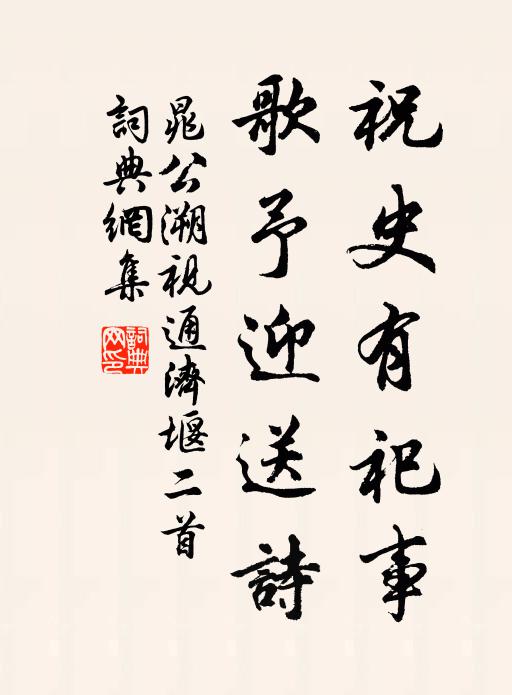 祝史有祀事
歌予迎送詩
晁公溯視通濟堰二首
詞典網集
詞典網印